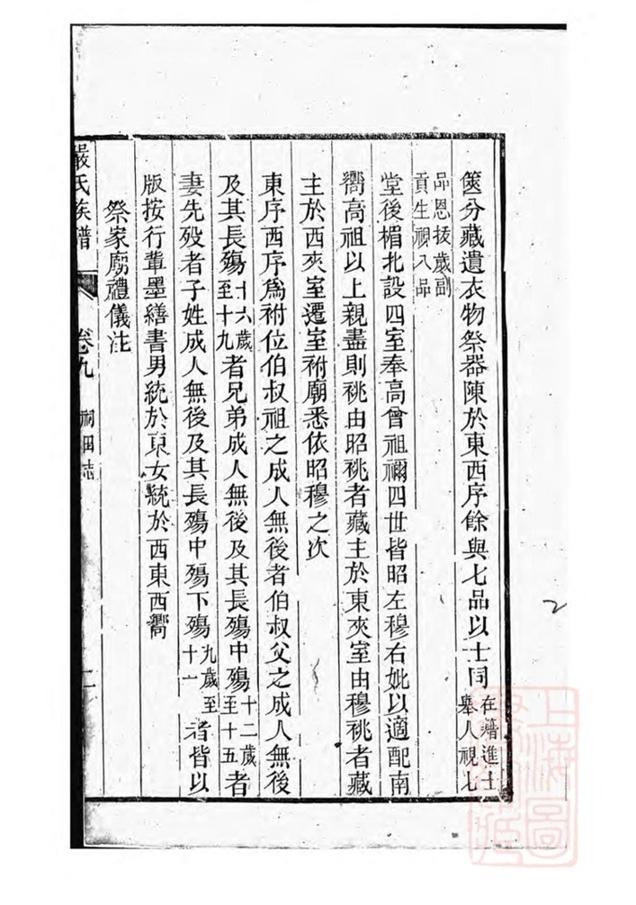 篋分藏遺衣物祭器陳於東西序餘與七品以士同在籍進士舉人視七
品恩拔歲副貢生視八品
堂後楣北設四室奉高曾祖禰四世皆昭左穆右妣以適配南
嚮高祖以上親盡則祧由昭祧者藏主於東夾室由穆祧者藏
主於西夾室遷室祔廟悉依昭穆之次
東序西序為祔位伯叔祖之成人無後者伯叔父之成人無後
及其長殤十六歲至十九者兄弟成人無後及其長殤中殤十二歲至十五者
妻先歿者子姓成人無後及其長殤中殤下殤九歲至十一者皆以
版按行輩墨繕書男統於東女統於西東西嚮
祭家廟禮儀注
嚴氏族譜 卷九 祠田誌 二
2
上海圖